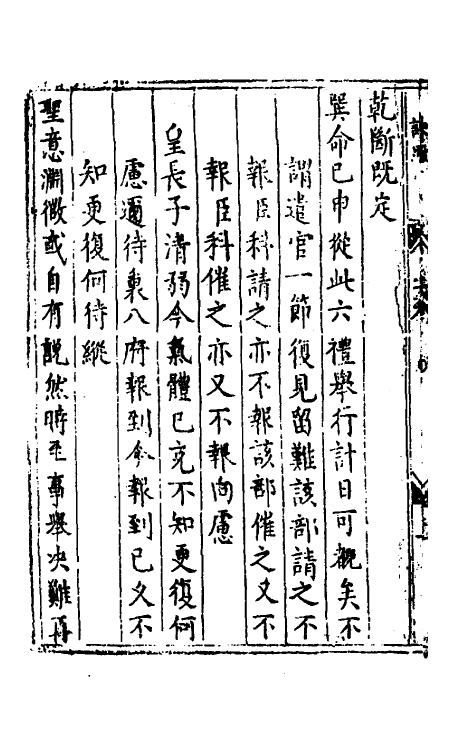 乾斷既定
巽命已申從此六禮舉行計日可覩矣不
謂遣官一節復見留難該部請之不
報臣科請之亦不報該部催之又不
報臣科催之亦又不報向慮
皇長子清弱今氣體已充不知更復何
慮邇待裏八府報到今報到已久不
知更復何待縱
聖意淵微或自有說然時至事舉决難再